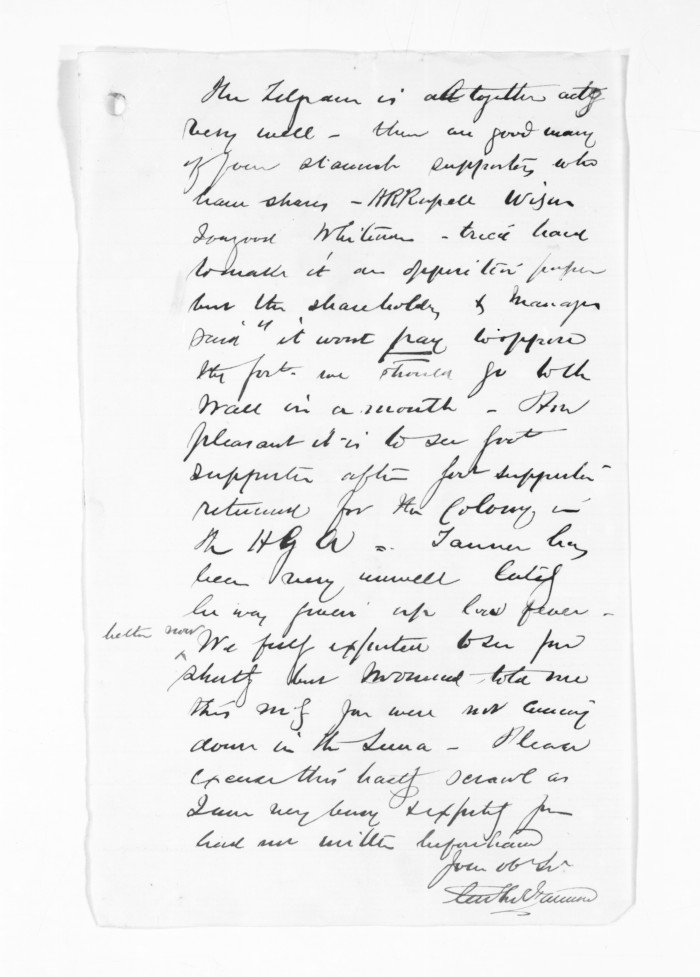 The Telegram is altogether actg
very well - there are good many
of your staunch supporters who
have shares - HR Russell
Whitmore - tried hard
to make it an opposition paper
but the shareholders & Manager
said "it wont pay to oppose
the Govt. we should go to the
Wall in a month - How
pleasant it is to see Govt
supporter after Govt supporter
returned for the Colony in
the H G A -. Tanner has
been very unwell lately
he was given up low fever -
better now
We fully expected to see you
shortly but told me
this mg you were not coming
down in the Luna - Please
excuse this hasty scrawl as
I am very busy & expectg you
had not written beforehand
Your obt Svt